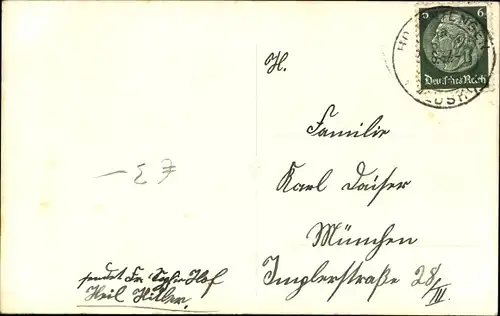 6 6
Deutsches Reich
H.
Familie
Karl Daiser
München
Implerstraße 28/III.
sendet Fr. Hof
Heil Hitler.